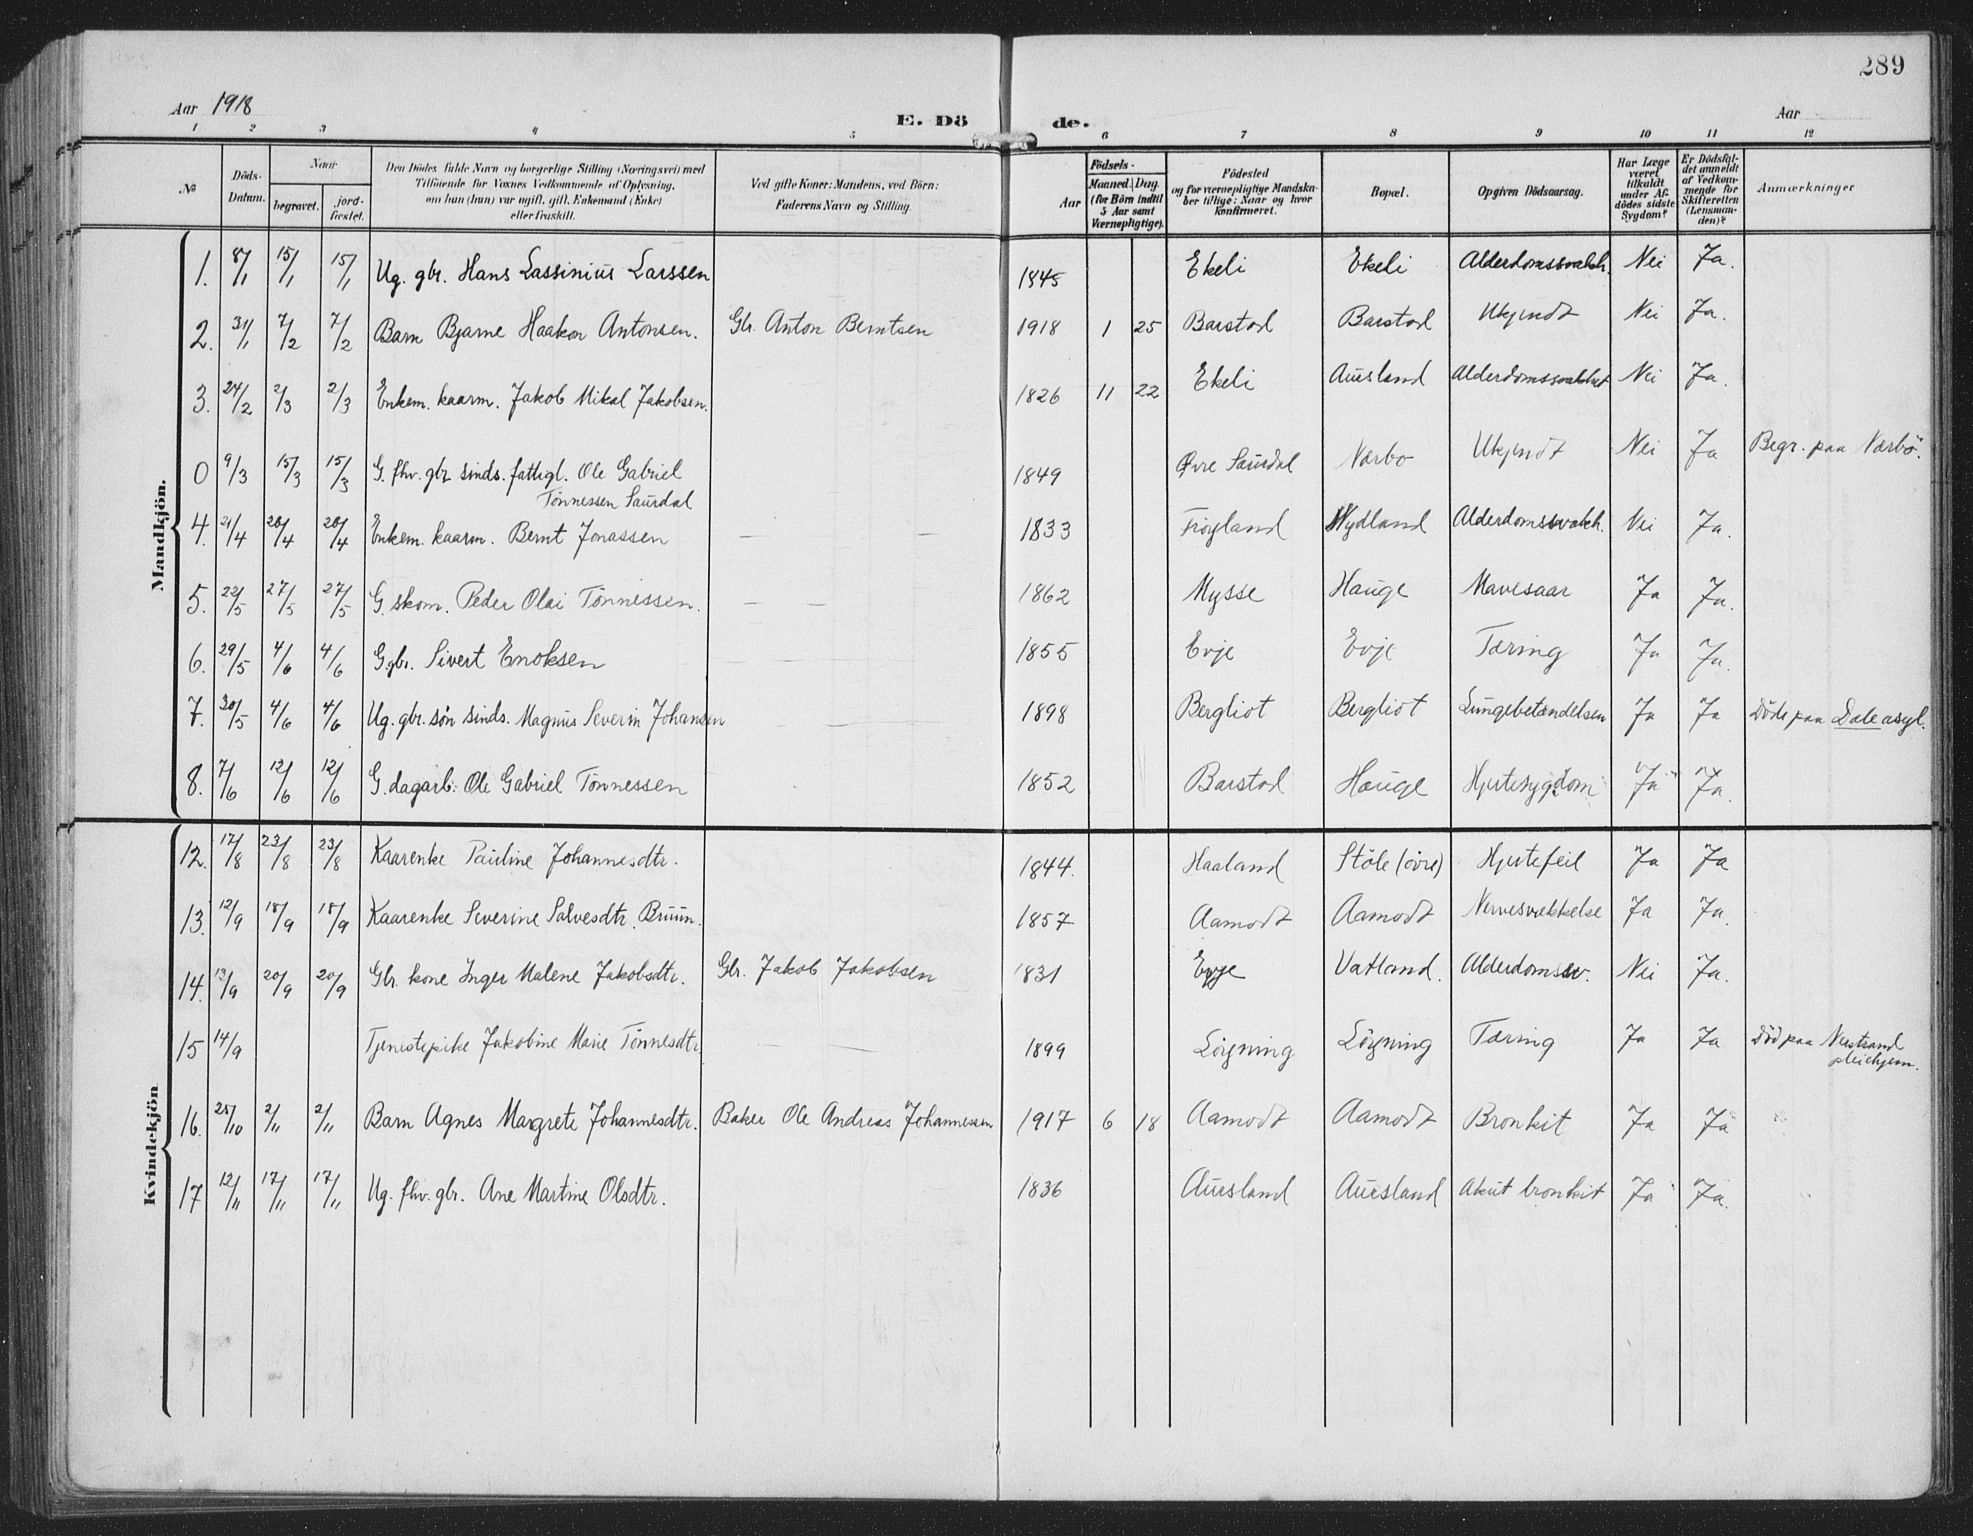 289
Aar 1918
E. Dö
de.
Aar
1 2 3 4 5 6 7 8 9 10 11 12
No
Döds-Datum.
Naar
begravet.
jord-fæstet.
Den Dödes fulde Navn og borgerlige Stilling (Næringsvei) med
Tilföiende for Voxnes Vedkommende af Oplysning,
om han (hun) var ugift, gift, Enkemand (Enke)
eller fraskilt.
Ved gifte Koner: Mandens, ved Börn:
Faderens Navn og Stilling.
Födsels-
Aar
Maaned. Dag.
(for Börn indtil
5 Aar samt
Værnepligtige).
Födested
og for værnepligtige Mandska-
ber tillige: Naar og hvor
konfirmeret.
Bopæl.
Opgiven Dödsaarsag.
Har Læge
været
tilkaldt
under Af-
dödes sidste
Sygdom?
Er Dödsfal-
det anmeldt
af Vedkom-
mende for
Skifteretten
(Lensman-
den)?
Anmærkninger
Mandkjön.
1. 8/1 15/1 15/1 Ug. gbr. Hans Lassinius Larssen 1845 Ekeli Ekeli Alderdomssvakh. Nei Ja.
2. 31/1 7/2 7/2 Barn Bjarne Haakon Antonsen. Gbr. Anton Berntsen 1918 1 25 Barstad Barstad Ukjendt Nei Ja.
3. 24/2 2/3 2/3 Enkem. kaarm. Jakob Mikal Jakobsen. 1826 11 22 Ekeli Auesland Alderdomssvakhet Nei Ja.
0 9/3 15/3 15/3 G. fhv. gbr sinds. fattigl. Ole Gabriel 1849 Øvre Saurdal Nærbo Ukjendt Nei Ja Begr. paa Nærbö.
Tönnessen Saurdal
4. 21/4 28/4 28/4 Enkem. kaarm. Bernt Jonassen — — 1833 Frøyland Nydland Alderdomssvakh. Nei Ja.
5. 22/5 27/5 27/5 G. skom. Peder Olai Tönnessen. — — 1862 Mysse Hauge Mavesaar Ja Ja.
6. 29/5 4/6 4/6 G gbr. Sivert Enoksen 1855 Evje Evje Tæring Ja Ja.
7. 30/5 4/6 4/6 Ug. gbr. sön sinds. Magnus Severin Johansen 1898 Bergliot Bergliot Lungebetændelsen Ja Ja Döde paa Dale asyl.
8. 7/6 12/6 12/6 G. dagarb. Ole Gabriel Tönnessen 1852 Barstad Hauge Hjertesygdom Ja Ja.
Kvindekjön
12. 17/8 23/8 23/8 Kaarenke Pauline Johannesdtr. 1844. Haaland Stöle (övre) Hjertefeil Ja Ja
13. 12/9 18/9 18/9 Kaarenke Severine Salvesdtr. Bruun. 1857 Aamodt Aamodt Nervesvækkelse Ja Ja.
14. 13/9 20/9 20/9 Gbr. kone Inger Malene Jakobsdtr. Gbr. Jakob Jakobsen 1831 Evje Vatland. Alderdomssv. Nei Ja.
15 14/9 Tjenestepike Jakobine Marie Tönnesdtr 1899 Lögning Lögning Tæring Ja Ja Död paa Nerstrand
pleiehjem.
16. 25/10 2/11 2/11 Barn Agnes Margrete Johannesdtr. Baker Ole Andreas Johannessen 1917 6 18 Aamodt Aamodt Bronkit Ja Ja
17 12/11 17/11 17/11 Ug. fhv. gbr. Ane Martine Olsdtr. 1836 Auesland Auesland Akut bronkit Ja Ja.